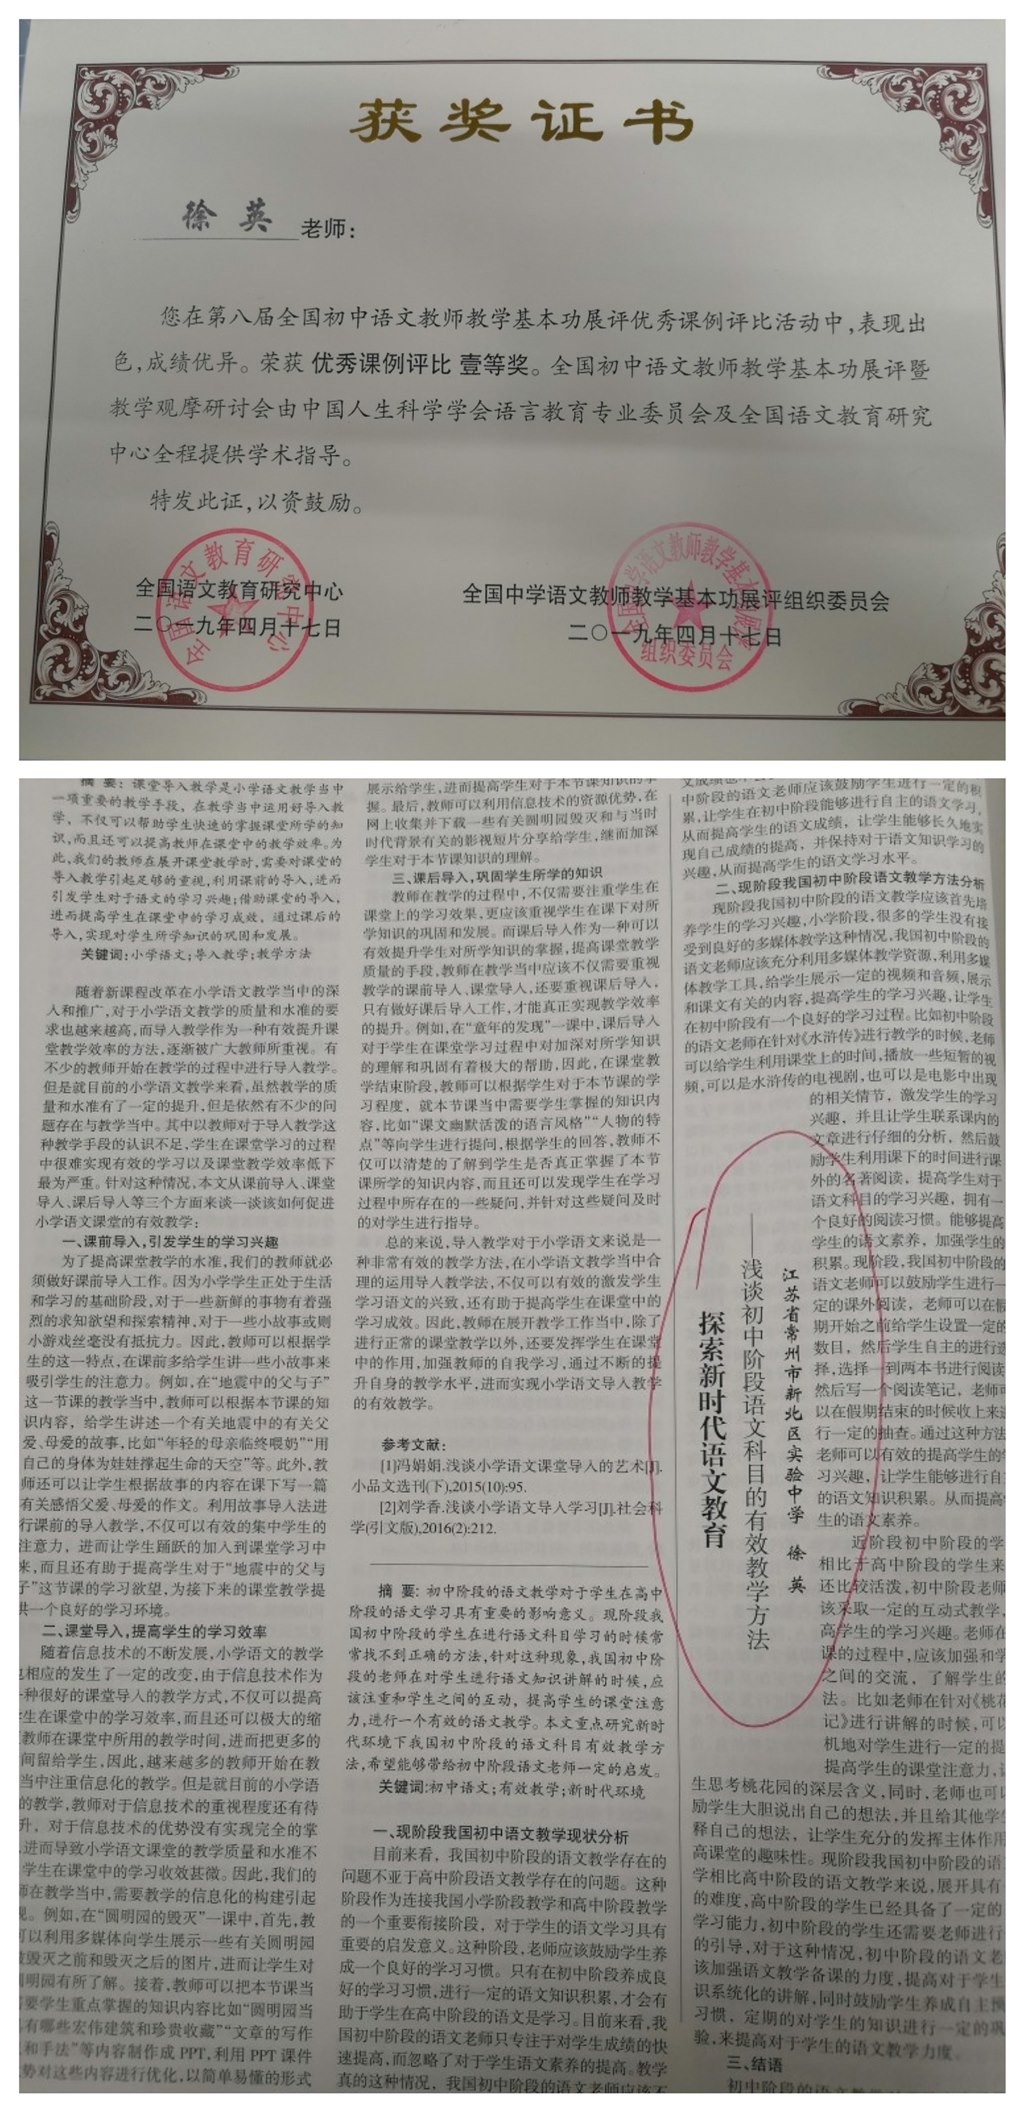 获奖证书
徐英 老师：
您在第八届全国初中语文教师教学基本功展评优秀课例评比活动中，表现出
色，成绩优异。荣获 优秀课例评比 壹等奖。全国初中语文教师教学基本功展评暨
教学观摩研讨会由中国人生科学学会语言教育专业委员会及全国语文教育研究
中心全程提供学术指导。
特发此证，以资鼓励。
全国语文教育研究中心
二〇一九年四月十七日
全国语文教育研究中心
全国中学语文教师教学基本功展评组织委员会
二〇一九年四月十七日
组织委员会
摘 要：课堂导入教学是小学语文教学当中
一项重要的教学手段，在教学当中运用好导入教
学，不仅可以帮助学生快速的掌握课堂所学的知
识，而且还可以提高教师在课堂中的教学效率。为
此，我们的教师在展开课堂教学时，需要对课堂的
导入教学引起足够的重视，利用课前的导入，进而
引发学生对于语文的学习兴趣；借助课堂的导入，
进而提高学生在课堂中的学习成效，通过课后的
导入，实现对学生所学知识的巩固和发展。
关键词：小学语文；导入教学；教学方法
随着新课程改革在小学语文教学当中的深
入和推广，对于小学语文教学的质量和水准的要
求也越来越高，而导入教学作为一种有效提升课
堂教学效率的方法，逐渐被广大教师所重视。有
不少的教师开始在教学的过程中进行导入教学。
但是就目前的小学语文教学来看，虽然教学的质
量和水准有了一定的提升，但是依然有不少的问
题存在与教学当中。其中以教师对于导入教学这
种教学手段的认识不足，学生在课堂学习的过程
中很难实现有效的学习以及课堂教学效率低下
最为严重。针对这种情况，本文从课前导入、课堂
导入、课后导入等三个方面来谈一谈该如何促进
小学语文课堂的有效教学：
一、课前导入，引发学生的学习兴趣
为了提高课堂教学的水准，我们的教师就必
须做好课前导入工作。因为小学学生正处于生活
和学习的基础阶段，对于一些新鲜的事物有着强
烈的求知欲望和探索精神，对于一些小故事或则
小游戏丝毫没有抵抗力。因此，教师可以根据学
生的这一特点，在课前多给学生讲一些小故事来
吸引学生的注意力。例如，在“地震中的父与子”
这一节课的教学当中，教师可以根据本节课的知
识内容，给学生讲述一个有关地震中的有关父
爱、母爱的故事，比如“年轻的母亲临终喂奶”“用
自己的身体为娃娃撑起生命的天空”等。此外，教
师还可以让学生根据故事的内容在课下写一篇
有关感悟父爱、母爱的作文。利用故事导入法进
行课前的导入教学，不仅可以有效的集中学生的
注意力，进而让学生踊跃的加入到课堂学习中
来，而且还有助于提高学生对于“地震中的父与
子”这节课的学习欲望，为接下来的课堂教学提
供一个良好的学习环境。
二、课堂导入，提高学生的学习效率
随着信息技术的不断发展，小学语文的教学
也相应的发生了一定的改变，由于信息技术作为
一种很好的课堂导入的教学方式，不仅可以提高
学生在课堂中的学习效率，而且还可以极大的缩
教师在课堂中所用的教学时间，进而把更多的
间留给学生，因此，越来越多的教师开始在教
当中注重信息化的教学。但是就目前的小学语
的教学，教师对于信息技术的重视程度还有待
升，对于信息技术的优势没有实现完全的掌
，进而导致小学语文课堂的教学质量和水准不
学生在课堂中的学习收效甚微。因此，我们的
师在教学当中，需要教学的信息化的构建引起
视。例如，在“圆明园的毁灭”一课中，首先，教
可以利用多媒体向学生展示一些有关圆明园
被毁灭之前和毁灭之后的图片，进而让学生对
圆明园有所了解。接着，教师可以把本节课当
需要学生重点掌握的知识内容比如“圆明园当
有哪些宏伟建筑和珍贵收藏”“文章的写作
和手法”等内容制作成PPT，利用PPT课件
势对这些内容进行优化，以简单易懂的形式
展示给学生，进而提高学生对于本节课知识的掌
握。最后，教师可以利用信息技术的资源优势，在
网上收集并下载一些有关圆明园毁灭和与当时
时代背景有关的影视短片分享给学生，继而加深
学生对于本节课知识的理解。
三、课后导入，巩固学生所学的知识
教师在教学的过程中，不仅需要注重学生在
课堂上的学习效果，更应该重视学生在课下对所
学知识的巩固和发展。而课后导入作为一种可以
有效提升学生对所学知识的掌握，提高课堂教学
质量的手段，教师在教学当中应该不仅需要重视
教学的课前导入、课堂导入，还要重视课后导入，
只有做好课后导入工作，才能真正实现教学效率
的提升。例如，在“童年的发现”一课中，课后导入
对于学生在课堂学习过程中对加深对所学知识
的理解和巩固有着极大的帮助，因此，在课堂教
学结束阶段，教师可以根据学生对于本节课的学
习程度，就本节课当中需要学生掌握的知识内
容，比如“课文幽默活泼的语言风格”“人物的特
点”等向学生进行提问，根据学生的回答，教师不
仅可以清楚的了解到学生是否真正掌握了本节
课所学的知识内容，而且还可以发现学生在学习
过程中所存在的一些疑问，并针对这些疑问及时
的对学生进行指导。
总的来说，导入教学对于小学语文来说是一
种非常有效的教学方法，在小学语文教学当中合
理的运用导入教学法，不仅可以有效的激发学生
学习语文的兴致，还有助于提高学生在课堂中的
学习成效。因此，教师在展开教学工作当中，除了
进行正常的课堂教学以外，还要发挥学生在课堂
中的作用，加强教师的自我学习，通过不断的提
升自身的教学水平，进而实现小学语文导入教学
的有效教学。
参考文献：
[1]冯娟娟.浅谈小学语文课堂导入的艺术[J].
小品文选刊(下),2015(10):95.
[2]刘学香.浅谈小学语文导入学习[J].社会科
学(引文版),2016(2):212.
摘 要：初中阶段的语文教学对于学生在高中
阶段的语文学习具有重要的影响意义。现阶段我
国初中阶段的学生在进行语文科目学习的时候常
常找不到正确的方法，针对这种现象，我国初中阶
段的老师在对学生进行语文知识讲解的时候，应
该注重和学生之间的互动，提高学生的课堂注意
力，进行一个有效的语文教学。本文重点研究新时
代环境下我国初中阶段的语文科目有效教学方
法，希望能够带给初中阶段语文老师一定的启发。
关键词：初中语文；有效教学；新时代环境
一、现阶段我国初中语文教学现状分析
目前来看，我国初中阶段的语文教学存在的
问题不亚于高中阶段语文教学存在的问题。这种
阶段作为连接我国小学阶段教学和高中阶段教学
的一个重要衔接阶段，对于学生的语文学习具有
重要的启发意义。这种阶段，老师应该鼓励学生养
成一个良好的学习习惯。只有在初中阶段养成良
好的学习习惯，进行一定的语文知识积累，才会有
助于学生在高中阶段的语文是学习。目前来看，我
国初中阶段的语文老师只专注于对学生成绩的快
速提高，而忽略了对于学生语文素养的提高。教学
真的这种情况，我国初中阶段的语文老师应该不
中阶段的语文老师应该鼓励学生进行一定的积
累，让学生在初中阶段能够进行自主的语文学习，
从而提高学生的语文成绩，让学生能够长久地实
现自己成绩的提高，并保持对于语文知识学习的
兴趣，从而提高学生的语文学习水平。
二、现阶段我国初中阶段语文教学方法分析
现阶段我国初中阶段的语文教学应该首先培
养学生的学习兴趣，小学阶段，很多的学生没有接
受到良好的多媒体教学这种情况，我国初中阶段的
语文老师应该充分利用多媒体教学资源，利用多媒
体教学工具，给学生展示一定的视频和音频，展示
和课文有关的内容，提高学生的学习兴趣，让学生
在初中阶段有一个良好的学习过程。比如初中阶段
的语文老师在针对《水浒传》进行教学的时候，老师
可以给学生利用课堂上的时间，播放一些短暂的视
频，可以是水浒传的电视剧，也可以是电影中出现
的相关情节，激发学生的学习
兴趣，并且让学生联系课内的
文章进行仔细的分析，然后鼓
励学生利用课下的时间进行课
外的名著阅读，提高学生对于
语文科目的学习兴趣，拥有一
个良好的阅读习惯。能够提高
学生的语文素养，加强学生的
积累。现阶段，我国初中阶段的
语文老师可以鼓励学生进行一
定的课外阅读，老师可以在假
期开始之前给学生设置一定的
数目，然后学生自主的进行选
择，选择一到两本书进行阅读
然后写一个阅读笔记，老师可
以在假期结束的时候收上来进
行一定的抽查。通过这种方法
老师可以有效的提高学生的学
习兴趣，让学生能够进行自
的语文知识积累。从而提高
生的语文素养。
探索新时代语文教育
——浅谈初中阶段语文科目的有效教学方法
江苏省常州市新北区实验中学 徐 英
近阶段初中阶段的学
相比于高中阶段的学生来
还比较活泼，初中阶段老师
该采取一定的互动式教学，
高学生的学习兴趣。老师在
课的过程中，应该加强和学
之间的交流，了解学生的
法。比如老师在针对《桃花
记》进行讲解的时候，可以
机地对学生进行一定的提
提高学生的课堂注意力，
生思考桃花园的深层含义，同时，老师也可
励学生大胆说出自己的想法，并且给其他学
释自己的想法，让学生充分的发挥主体作用
高课堂的趣味性。现阶段我国初中阶段的语
学相比高中阶段的语文教学来说，展开具有
的难度，高中阶段的学生已经具备了一定的
学习能力，初中阶段的学生还需要老师进行
的引导，对于这种情况，初中阶段的语文老
该加强语文教学备课的力度，提高对于学生
识系统化的讲解，同时鼓励学生养成自主预
习惯，定期的对学生的知识进行一定的巩
验，来提高对于学生的语文教学力度。
三、结语